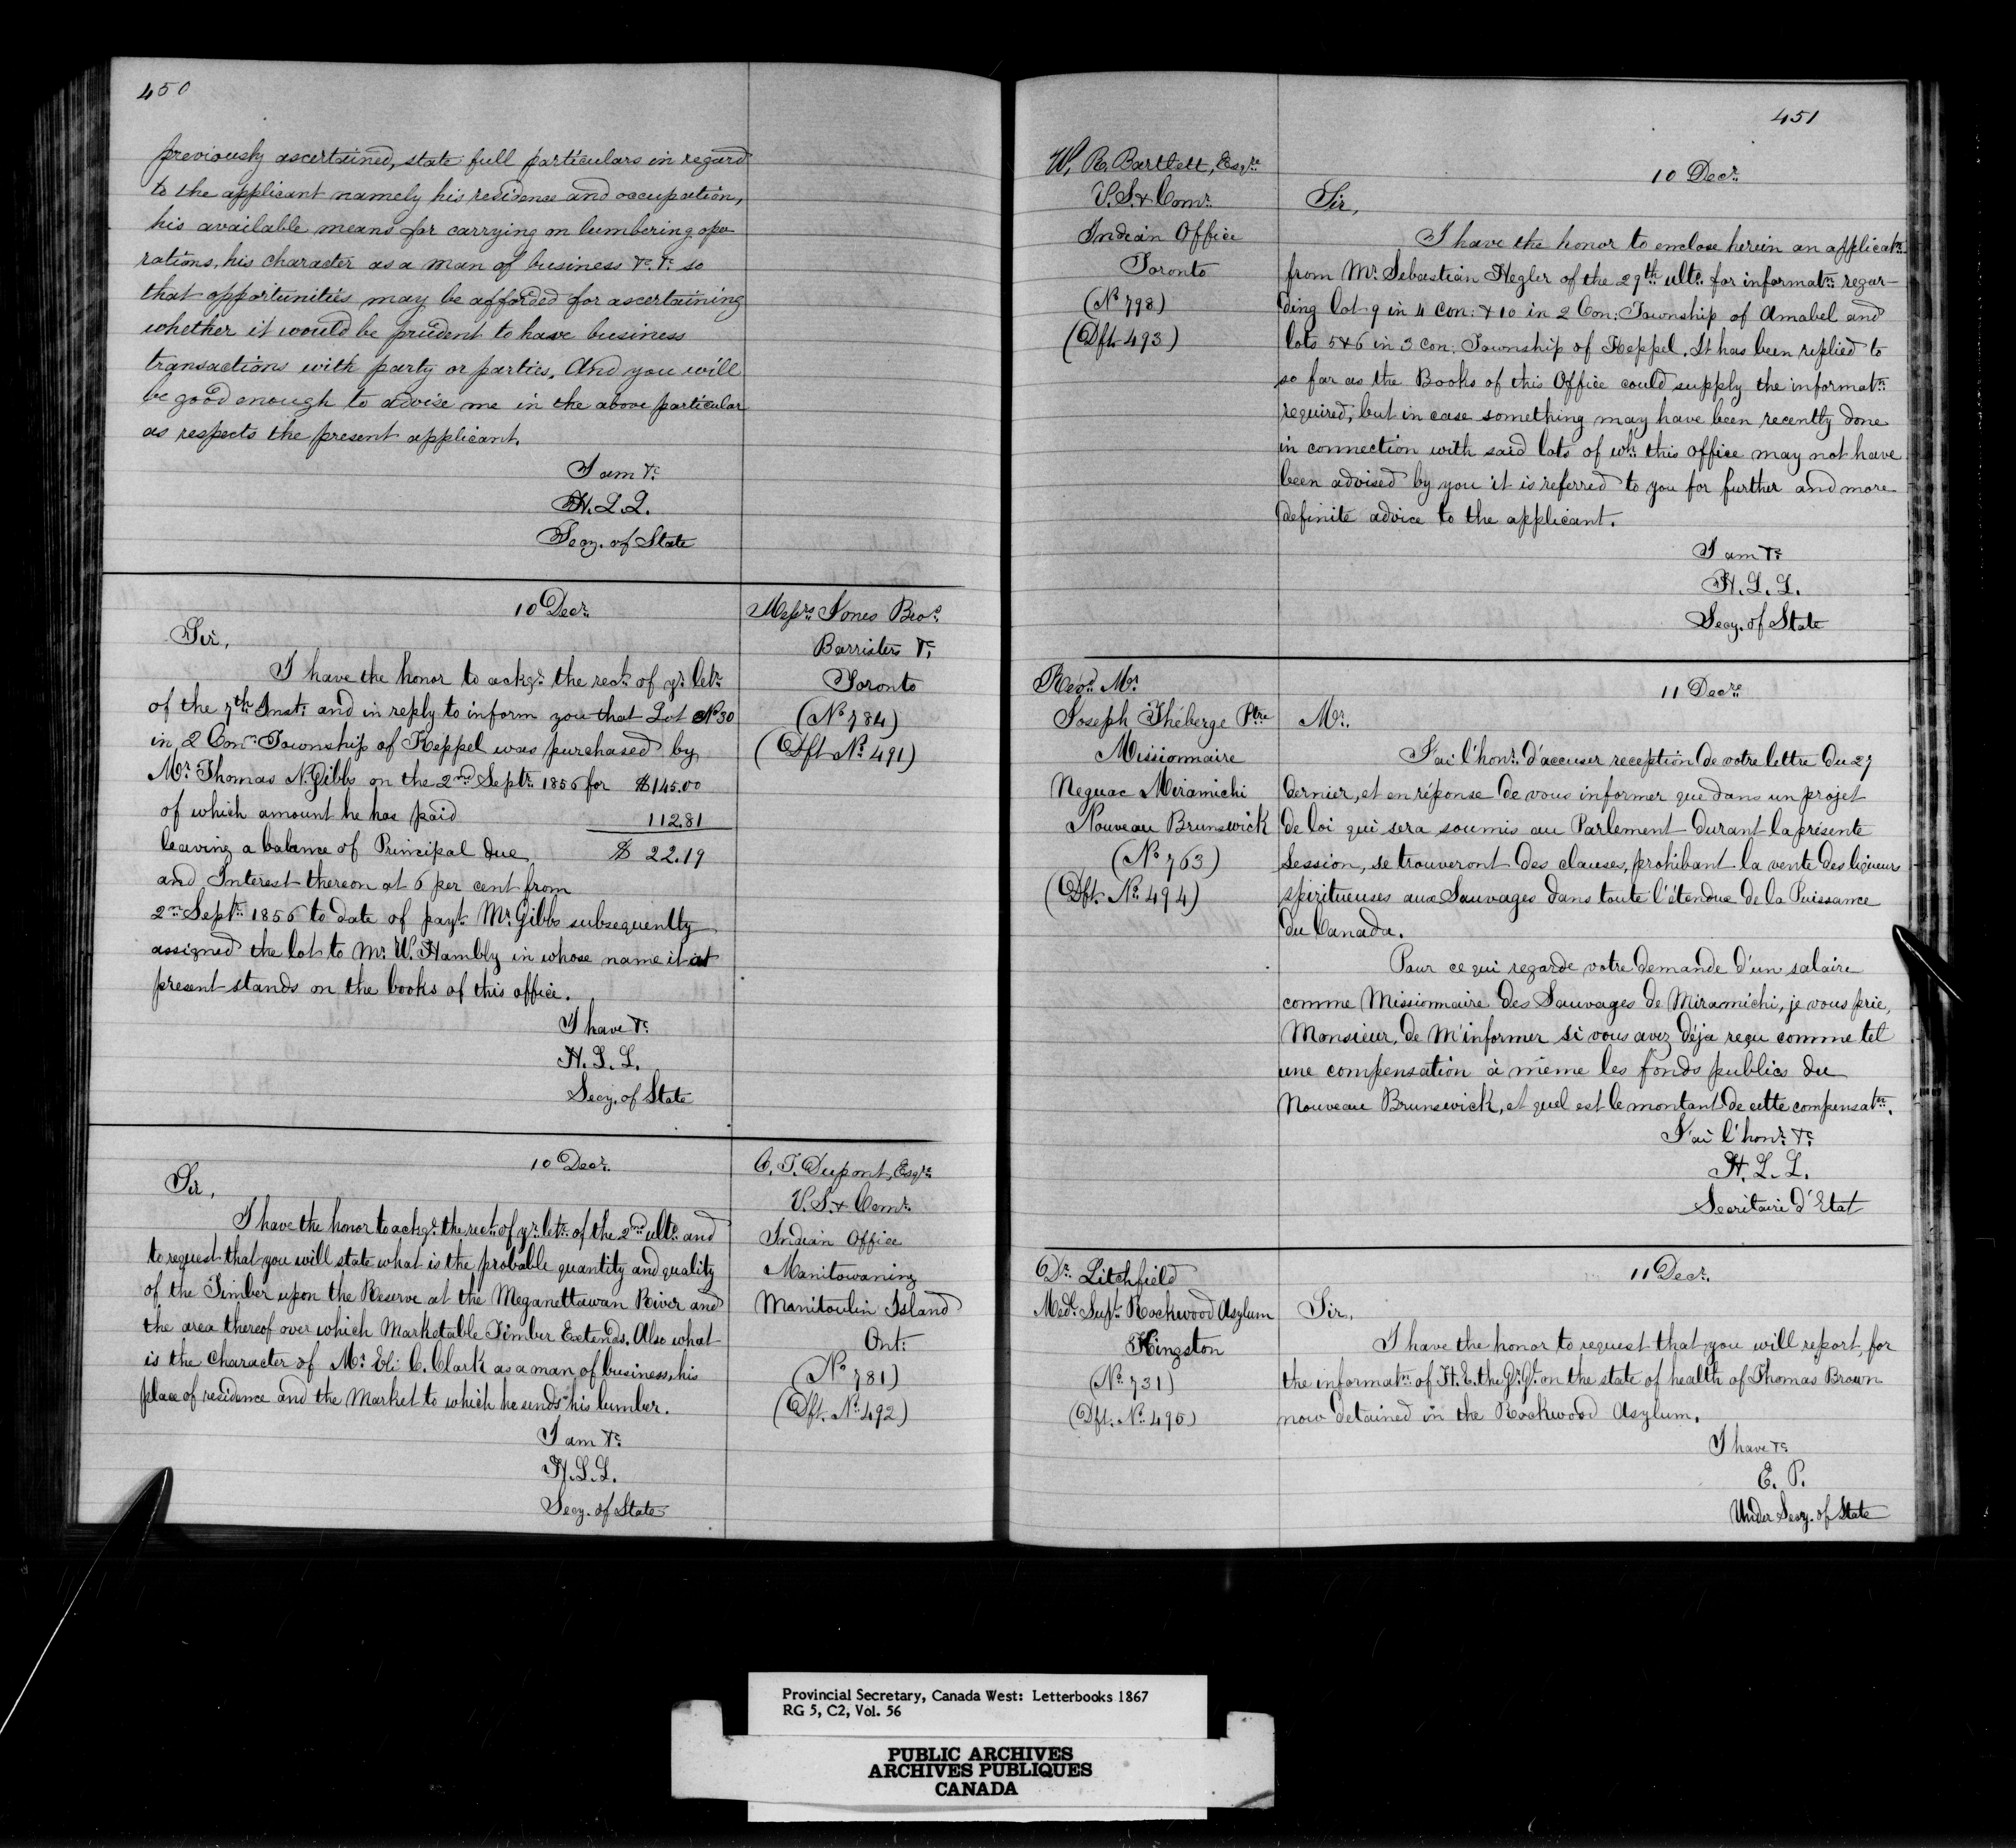 450
previously ascertained, state full particulars in regard
to the applicant namely his residence and occupation,
his available means for carrying on lumbering ope
rations, his character as a man of business &c. &c. so
that opportunities may be afforded for ascertaining
whether it would be prudent to have business
transactions with party or parties. And you will
be good enough to advise me in the above particular
as respects the present applicant.
I am &c.
H. L. L.
Secy. of State
10 Decr.
Messrs Jones Bros.
Barristers &c.
Toronto
(No 784)
(Dft No 491)
Sir,
I have the honor to ackge. the rect. of yr. letr.
of the 7th Inst. and in reply to inform you that Lot No 30
in 2 Con: Township of Keppel was purchased by
Mr. Thomas N. Gibbs on the 2nd Septr. 1856 for $145.00
of which amount he has paid 112.81
leaving a balance of Principal due $ 22.19
and Interest thereon at 6 per cent from
2nd Septr. 1856 to date of payt. Mr. Gibbs subsequently
assigned the lot to Mr. W. Hambly in whose name it at
present stands on the books of this office.
I have &c.
H. L. L.
Secy. of State
10 Decr.
C. T. Dupont, Esqre.
V. S. & Comr.
Indian Office
Manitowaning
Manitoulin Island
Ont:
(No 781)
(Dft. No. 492)
Sir,
I have the honor to ackge. the rect. of yr. letr. of the 2nd ulto. and
to request that you will state what is the probable quantity and quality
of the Timber upon the Reserve at the Meganettawan River and
the area thereof over which Marketable Timber Extends. Also what
is the Character of Mr. Eli C. Clark as a man of business, his
place of residence and the Market to which he sends his lumber.
I am &c.
H. L. L.
Secy. of State
451
W. R. Bartlett, Esqre
V. S. & Comr.
Indian Office
Toronto
(No 798)
(Dft 493)
10 Decr.
Sir,
I have the honor to enclose herein an applicatn.
from Mr. Sebastian Hegler of the 29th ulto. for informatn. regar-
ding lot 9 in 4 Con: & 10 in 2 Con: Township of Amabel and
lots 5 & 6 in 3 Con: Township of Keppel. It has been replied to
so far as the Books of this Office could supply the informatn.
required, but in case something may have been recently done
in connection with said lots of wh. this office may not have
been advised by you it is referred to you for further and more
definite advice to the applicant.
I am &c.
H. L. L.
Secy. of State
Revd. Mr.
Joseph Théberge Ptre
Missionnaire
Neguac Miramichi
Nouveau Brunswick
(No 763)
(Dft. No. 494)
11 Decre
Mr.
J'ai l'honr. d'accuser reception de votre lettre du 27
dernier, et en réponse de vous informer que dans un projet
de loi qui sera soumis au Parlement durant la présente
Session, se trouveront des clauses, prohibant la vente des liqueurs
spiritueuses aux Sauvages dans toute l'étendue de la Puissance
du Canada.
Pour ce qui regarde votre demande d'un salaire
comme Missionnaire des Sauvages de Miramichi, je vous prie,
Monsieur, de m'informer si vous avez déja reçu comme tel
une compensation à même les fonds publics du
Nouveau Brunswick, et quel est le montant de cette compensatn.
J'ai l'honr. &c.
H. L. L.
Secrétaire d'Etat
Dr. Litchfield
Medl. Supt. Rockwood Asylum
Kingston
(No. 731)
(Dft. No. 495)
11 Decr.
Sir,
I have the honor to request that you will report, for
the informatn. of H. E. the Gr. Gl. on the state of health of Thomas Brown
now detained in the Rockwood Asylum.
I have &c.
E. P.
Under Secy. of State
Provincial Secretary, Canada West: Letterbooks 1867
RG 5, C2, Vol. 56
PUBLIC ARCHIVES
ARCHIVES PUBLIQUES
CANADA